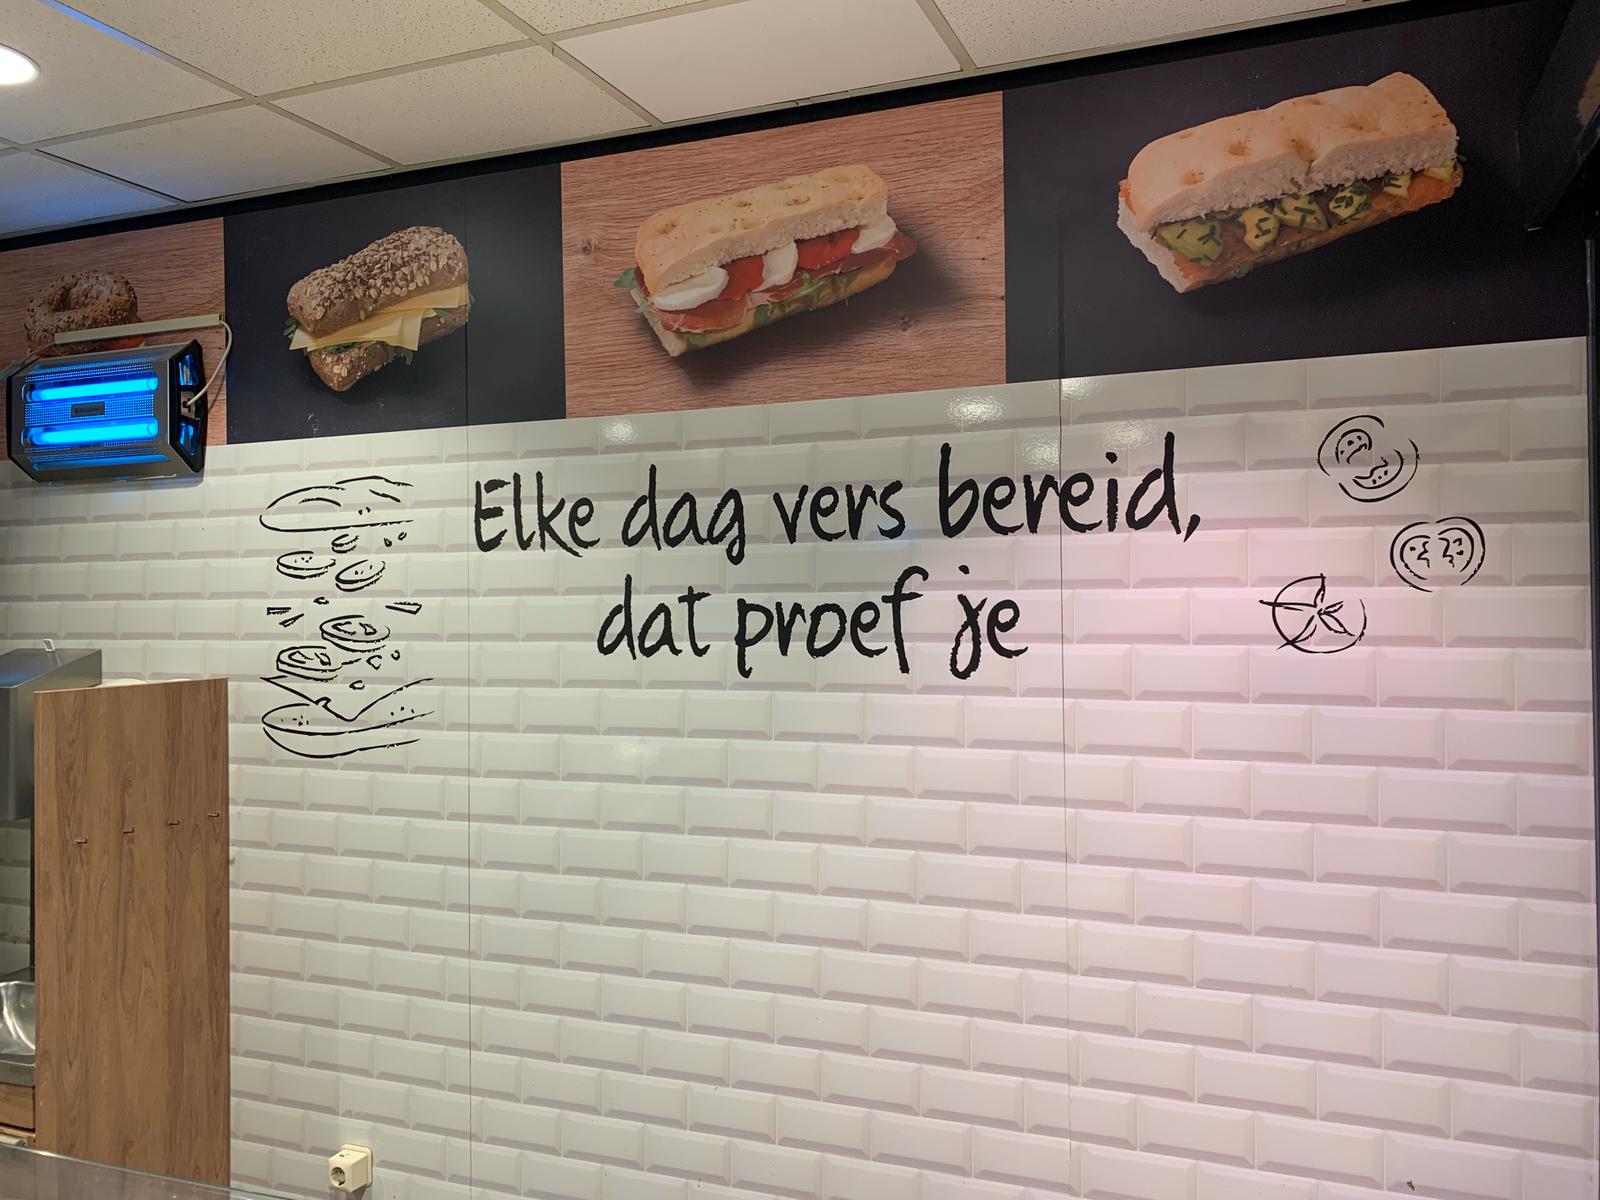 Elke dag vers bereid,
dat proef je